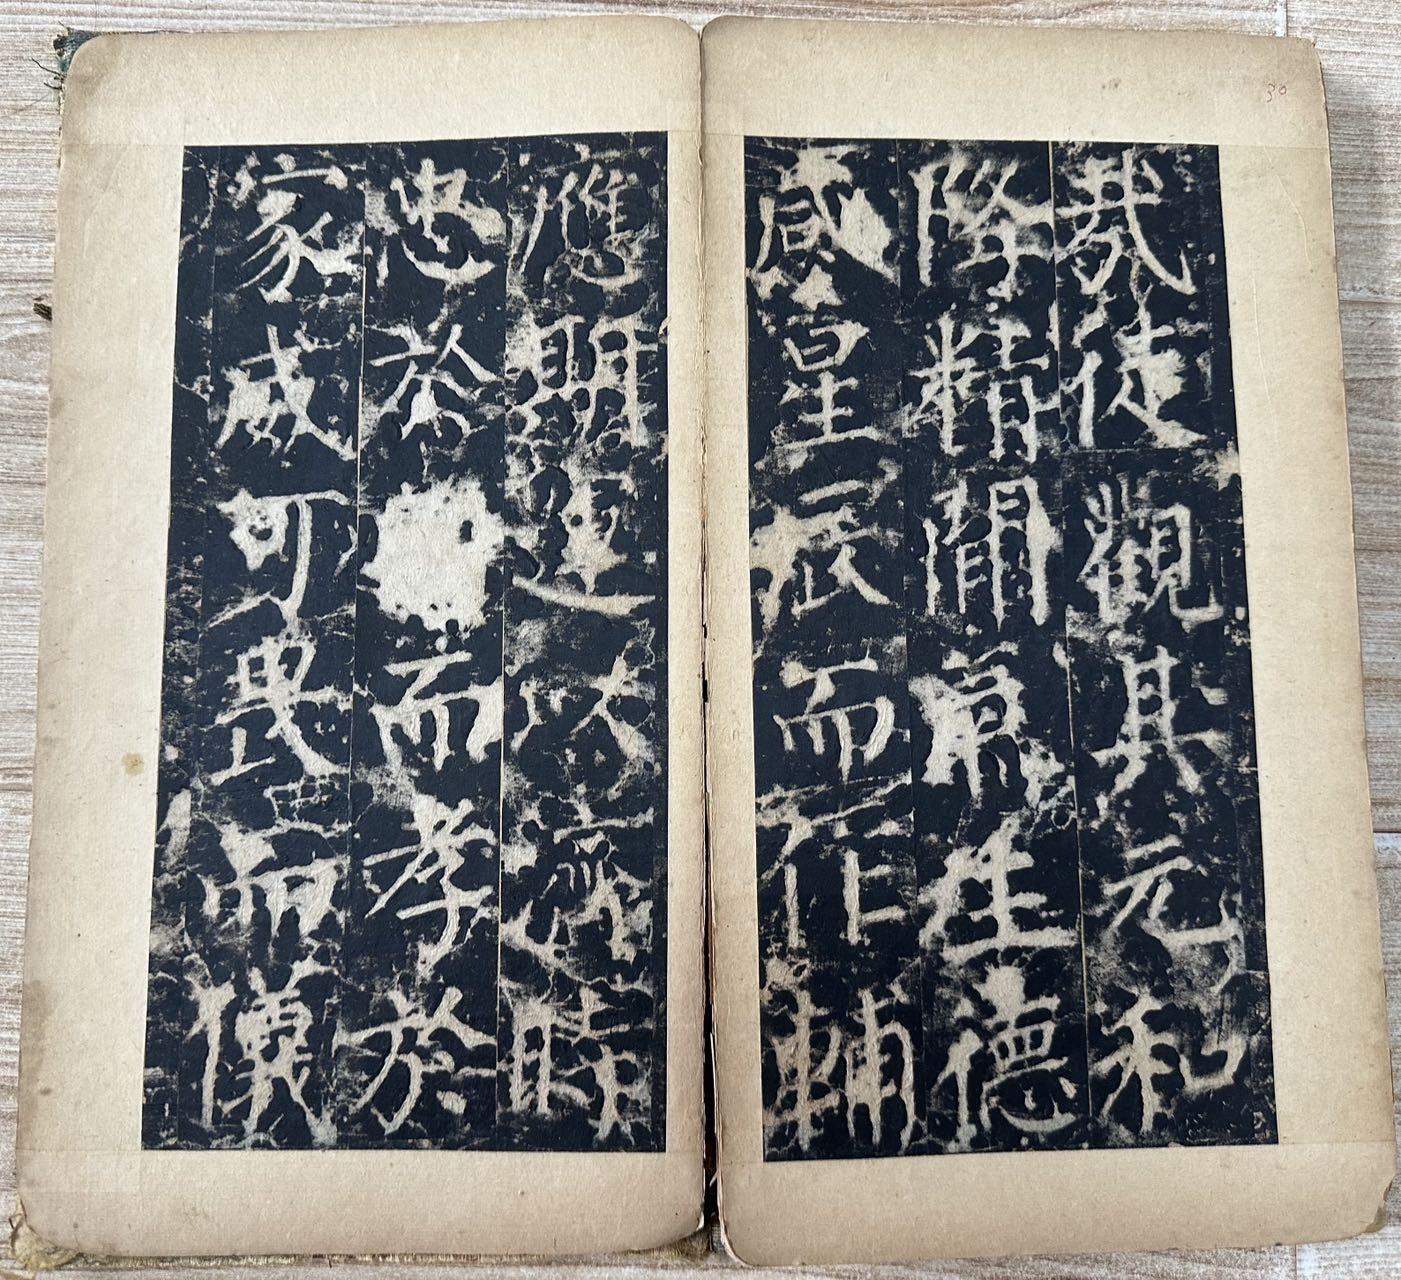 30
哉徒觀其元和
降精間生德
感星辰而作輔
應期運以濟時
忠於而孝於
家威可畏而儀